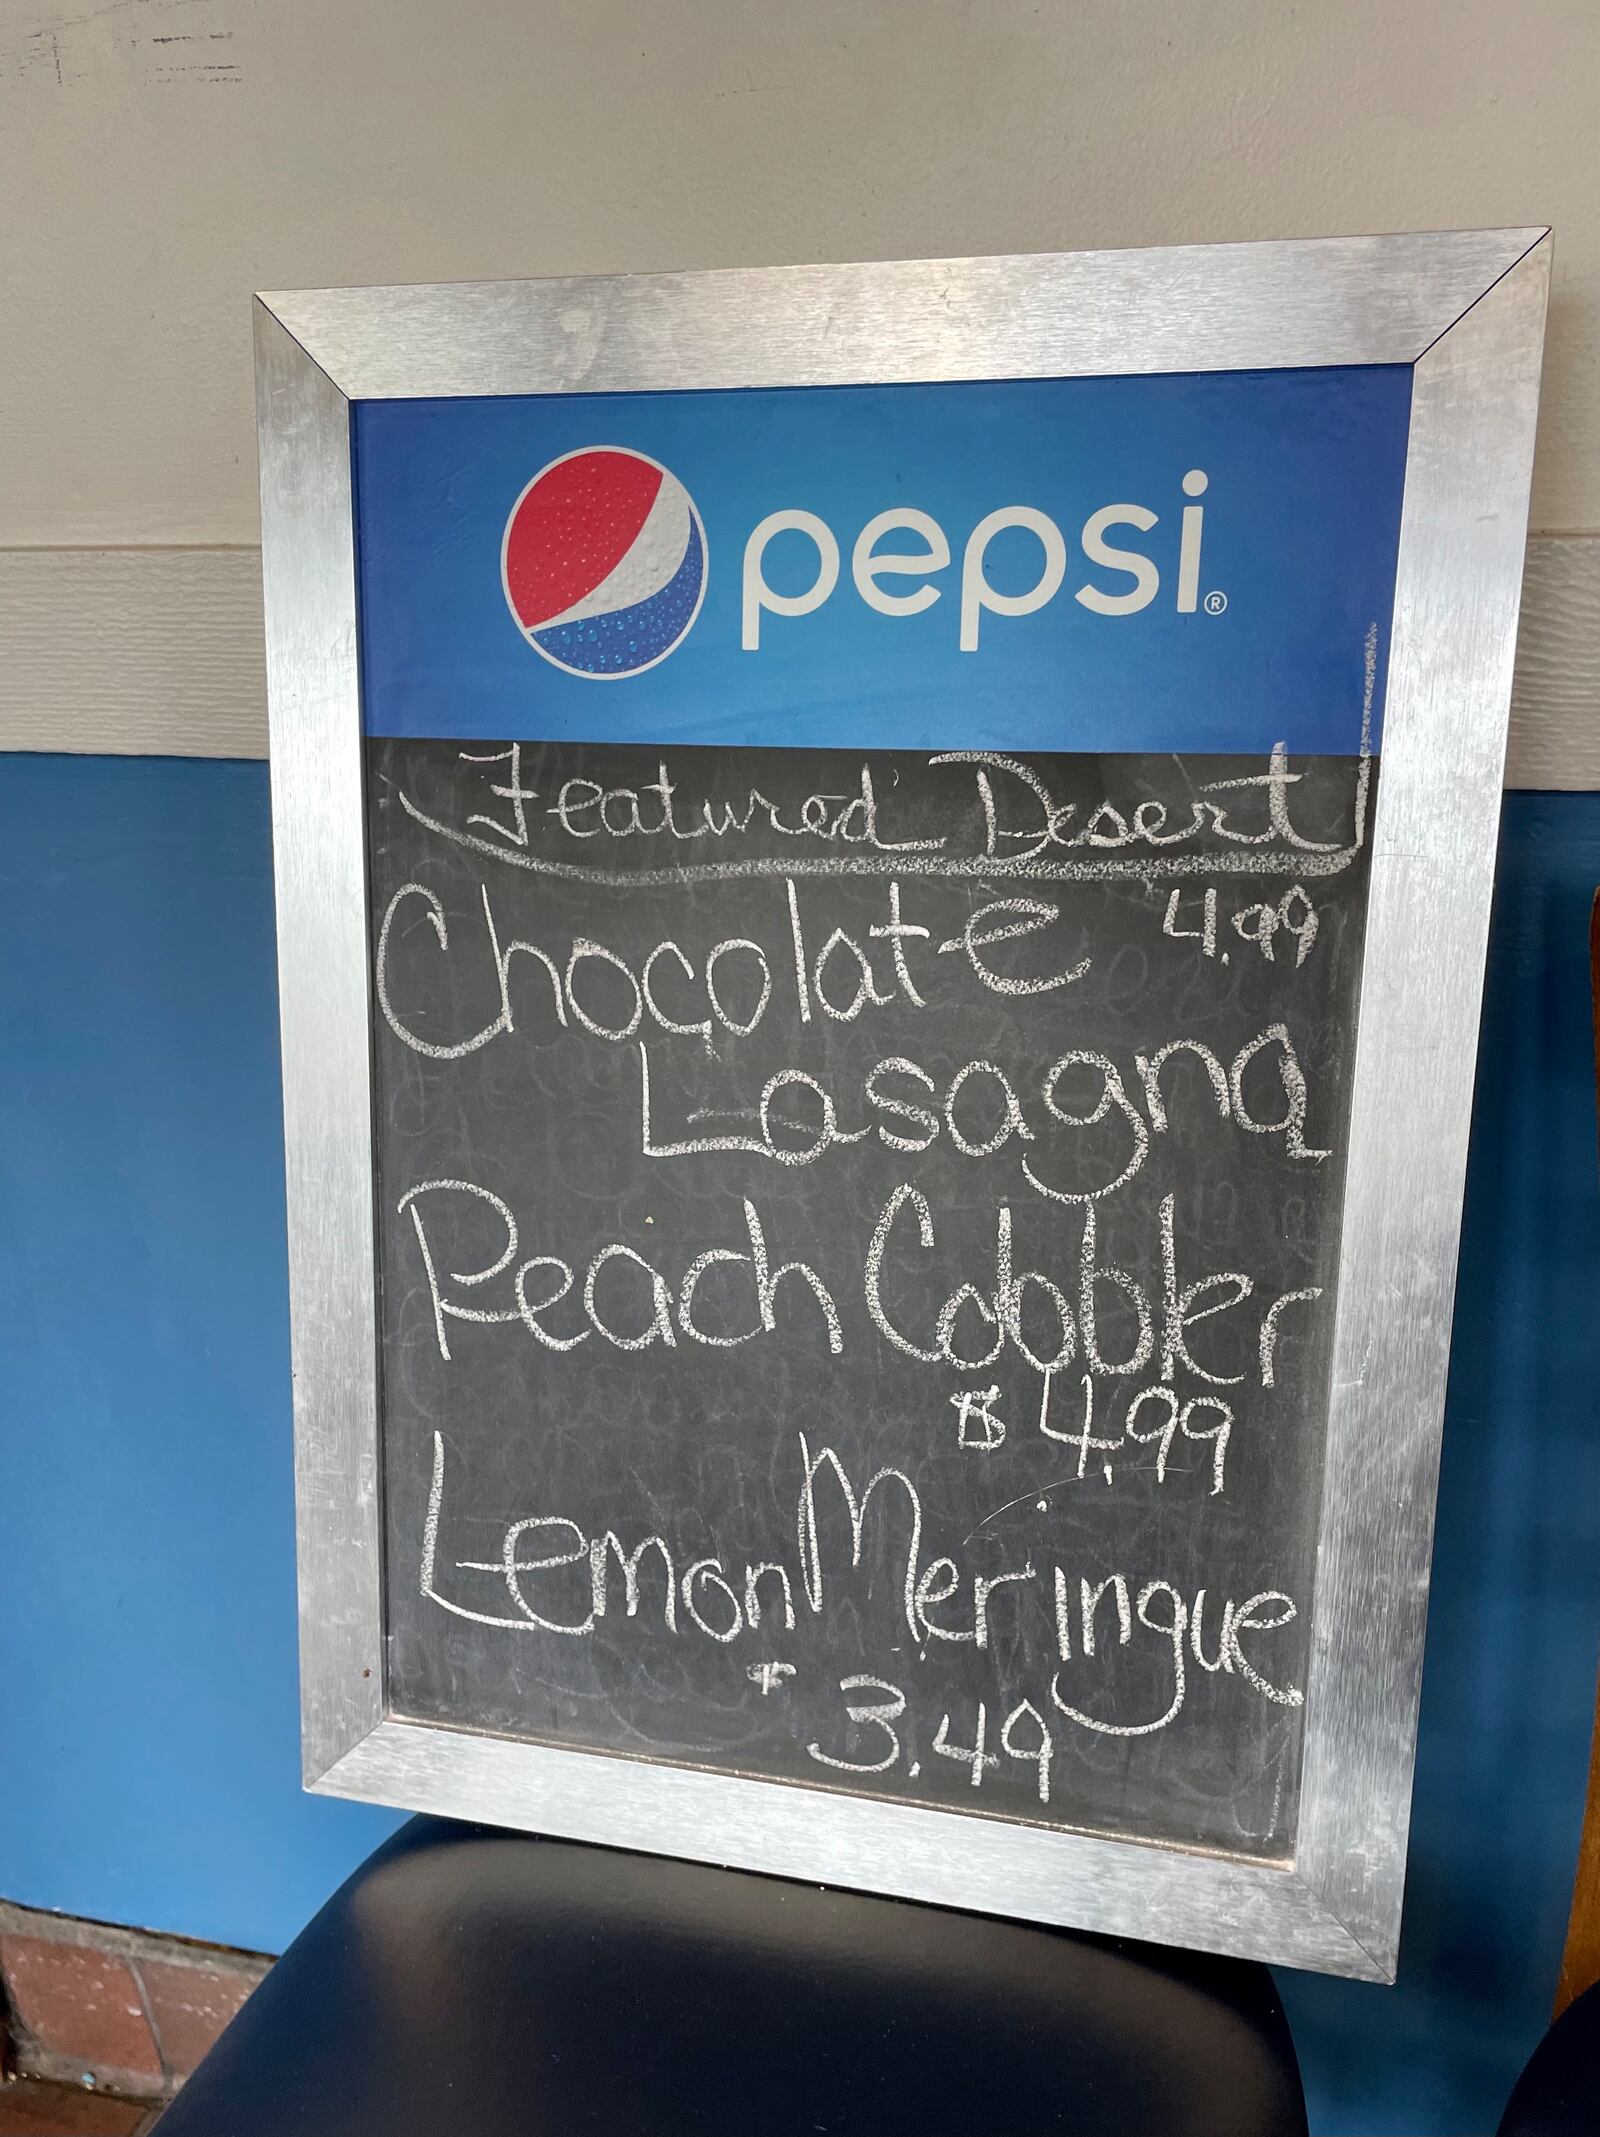 pepsi®
Featured Desert
Chocolate 4.99
Lasagna
Peach Cobbler
$ 4.99
Lemon Meringue
$ 3.49